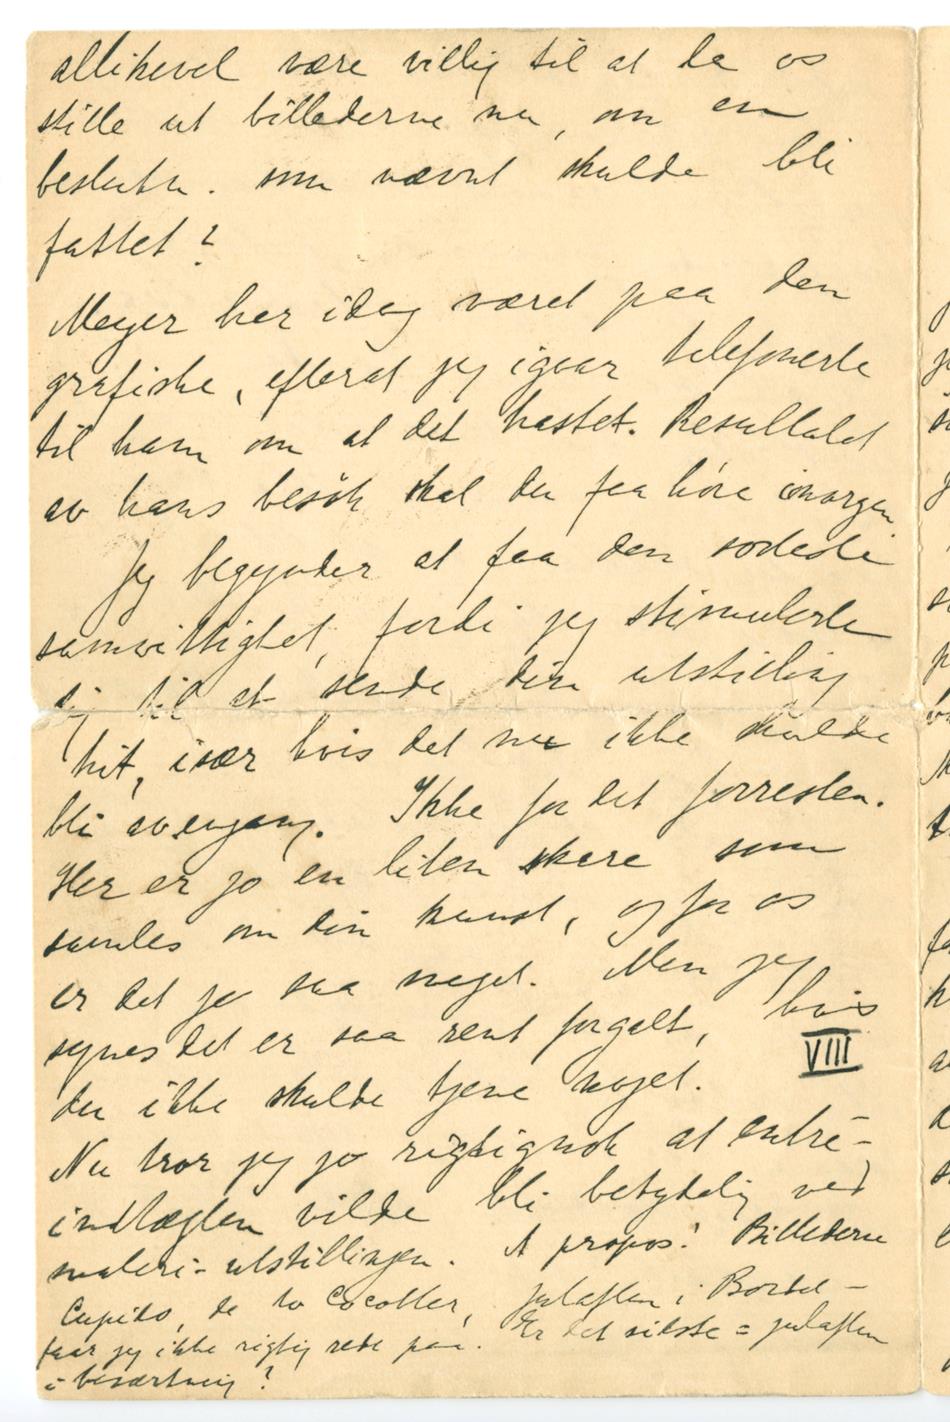 allikevel være villig til at la os
stille ut billederne nu, om en
beslutn. som nævnt skulde bli
fattet?
Meyer har idag været paa den
grafiske, efterat jeg igaar telefonerte
til ham om at det hastet. Resultatet
av hans besøk skal du faa høre imorgen
Jeg begynder at faa den
samvittighet, fordi jeg stimulerte
dig til at sende din utstilling
hit, især hvis det nu ikke skulde
bli avengang. Ikke for det forresten.
Her er jo en liten skare som
samles om din kunst, og for os
er det jo saa meget. Men jeg
synes det er saa rent forgalt, hvis
du ikke skulde tjene noget.
VIII
Nu tror jeg jo rigtignok at entré-
indtægten vilde bli betydelig ved
maleri-utstillingen. A propos! Billederne
Cupido, de to Cocotter, julaften i Bordel-
faar jeg ikke rigtig rede paa. Er det sidste = julaften
i besætning?